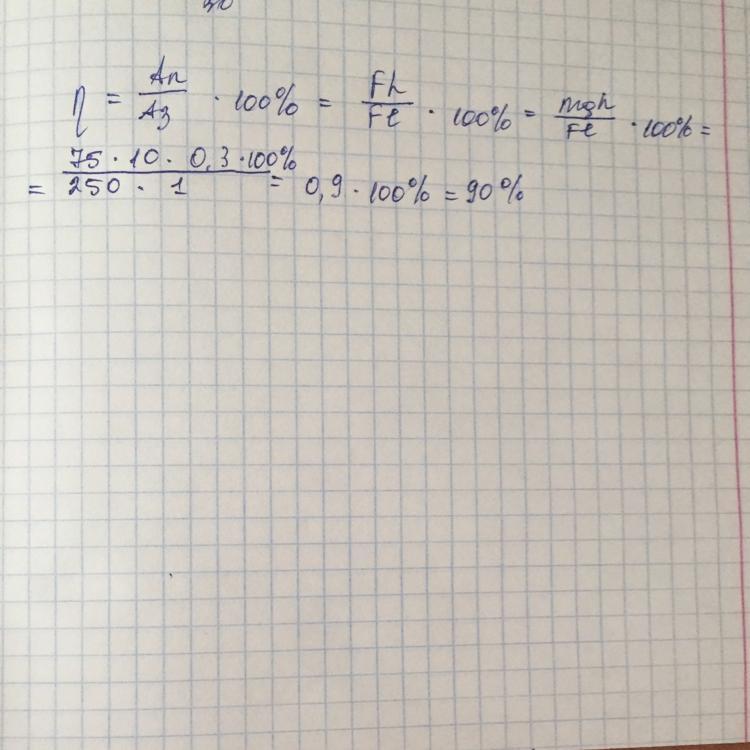 η = Aп/Aз · 100% = Fh/Fl · 100% = mgh/Fl · 100% =
= 75 · 10 · 0,3 · 100%/250 · 1 = 0,9 · 100% = 90%